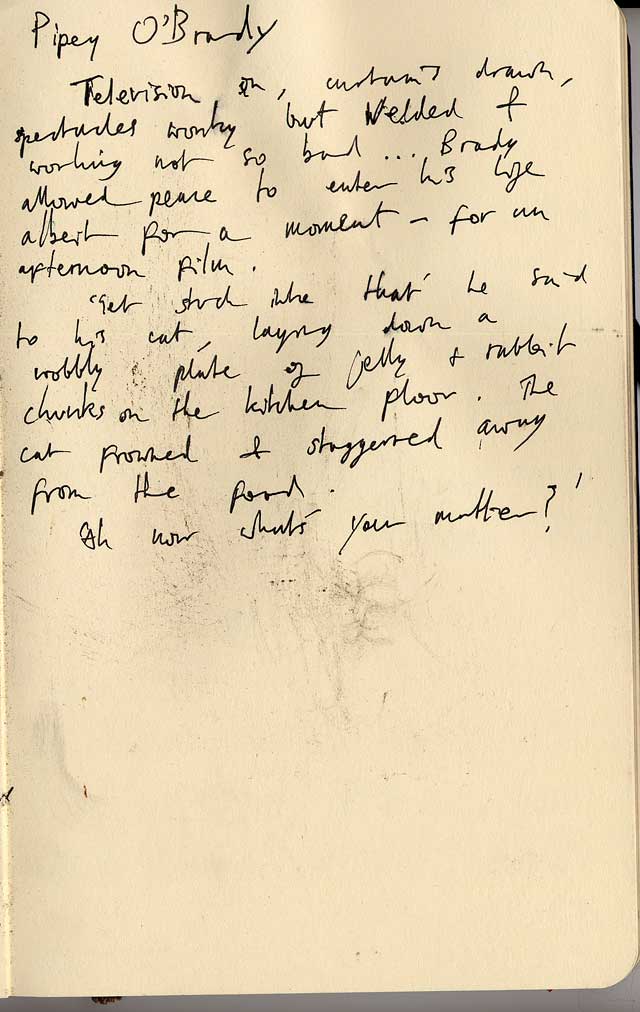 Pipey O'Brady
Television on, curtains drawn,
spectacles wonky but welded &
working not so bad... Brady
allowed peace to enter his life
albeit for a moment - for an
afternoon film.
'Get stuck into that' he said
to his cat, laying down a
wobbly plate of jelly & rabbit
chunks on the kitchen floor. The
cat frowned & staggered away
from the food.
Oh now what's your matter?'